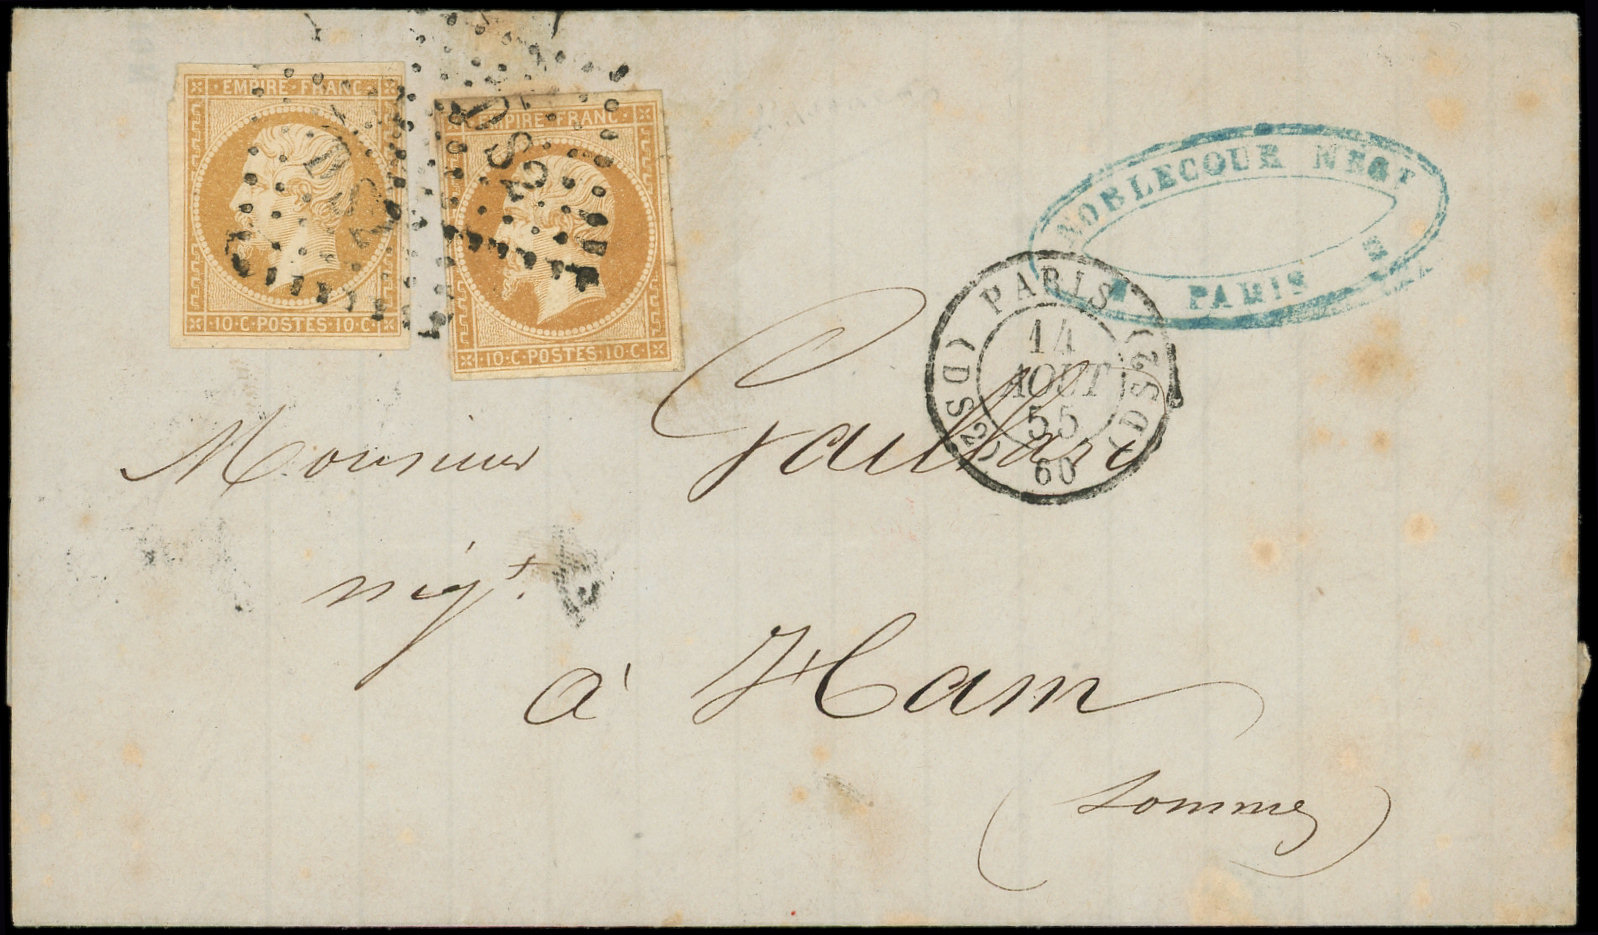 EMPIRE·FRANC·
10·C·POSTES·10·C·
EMPIRE·FRANC·
10·C·POSTES·10·C·
DS2
DS2
NOBLECOUR NÉGT
PARIS
PARIS
(DS2)
14
AOUT
55
(DS2)
60
Monsieur Gaillard
négt.
à Ham
(Somme)